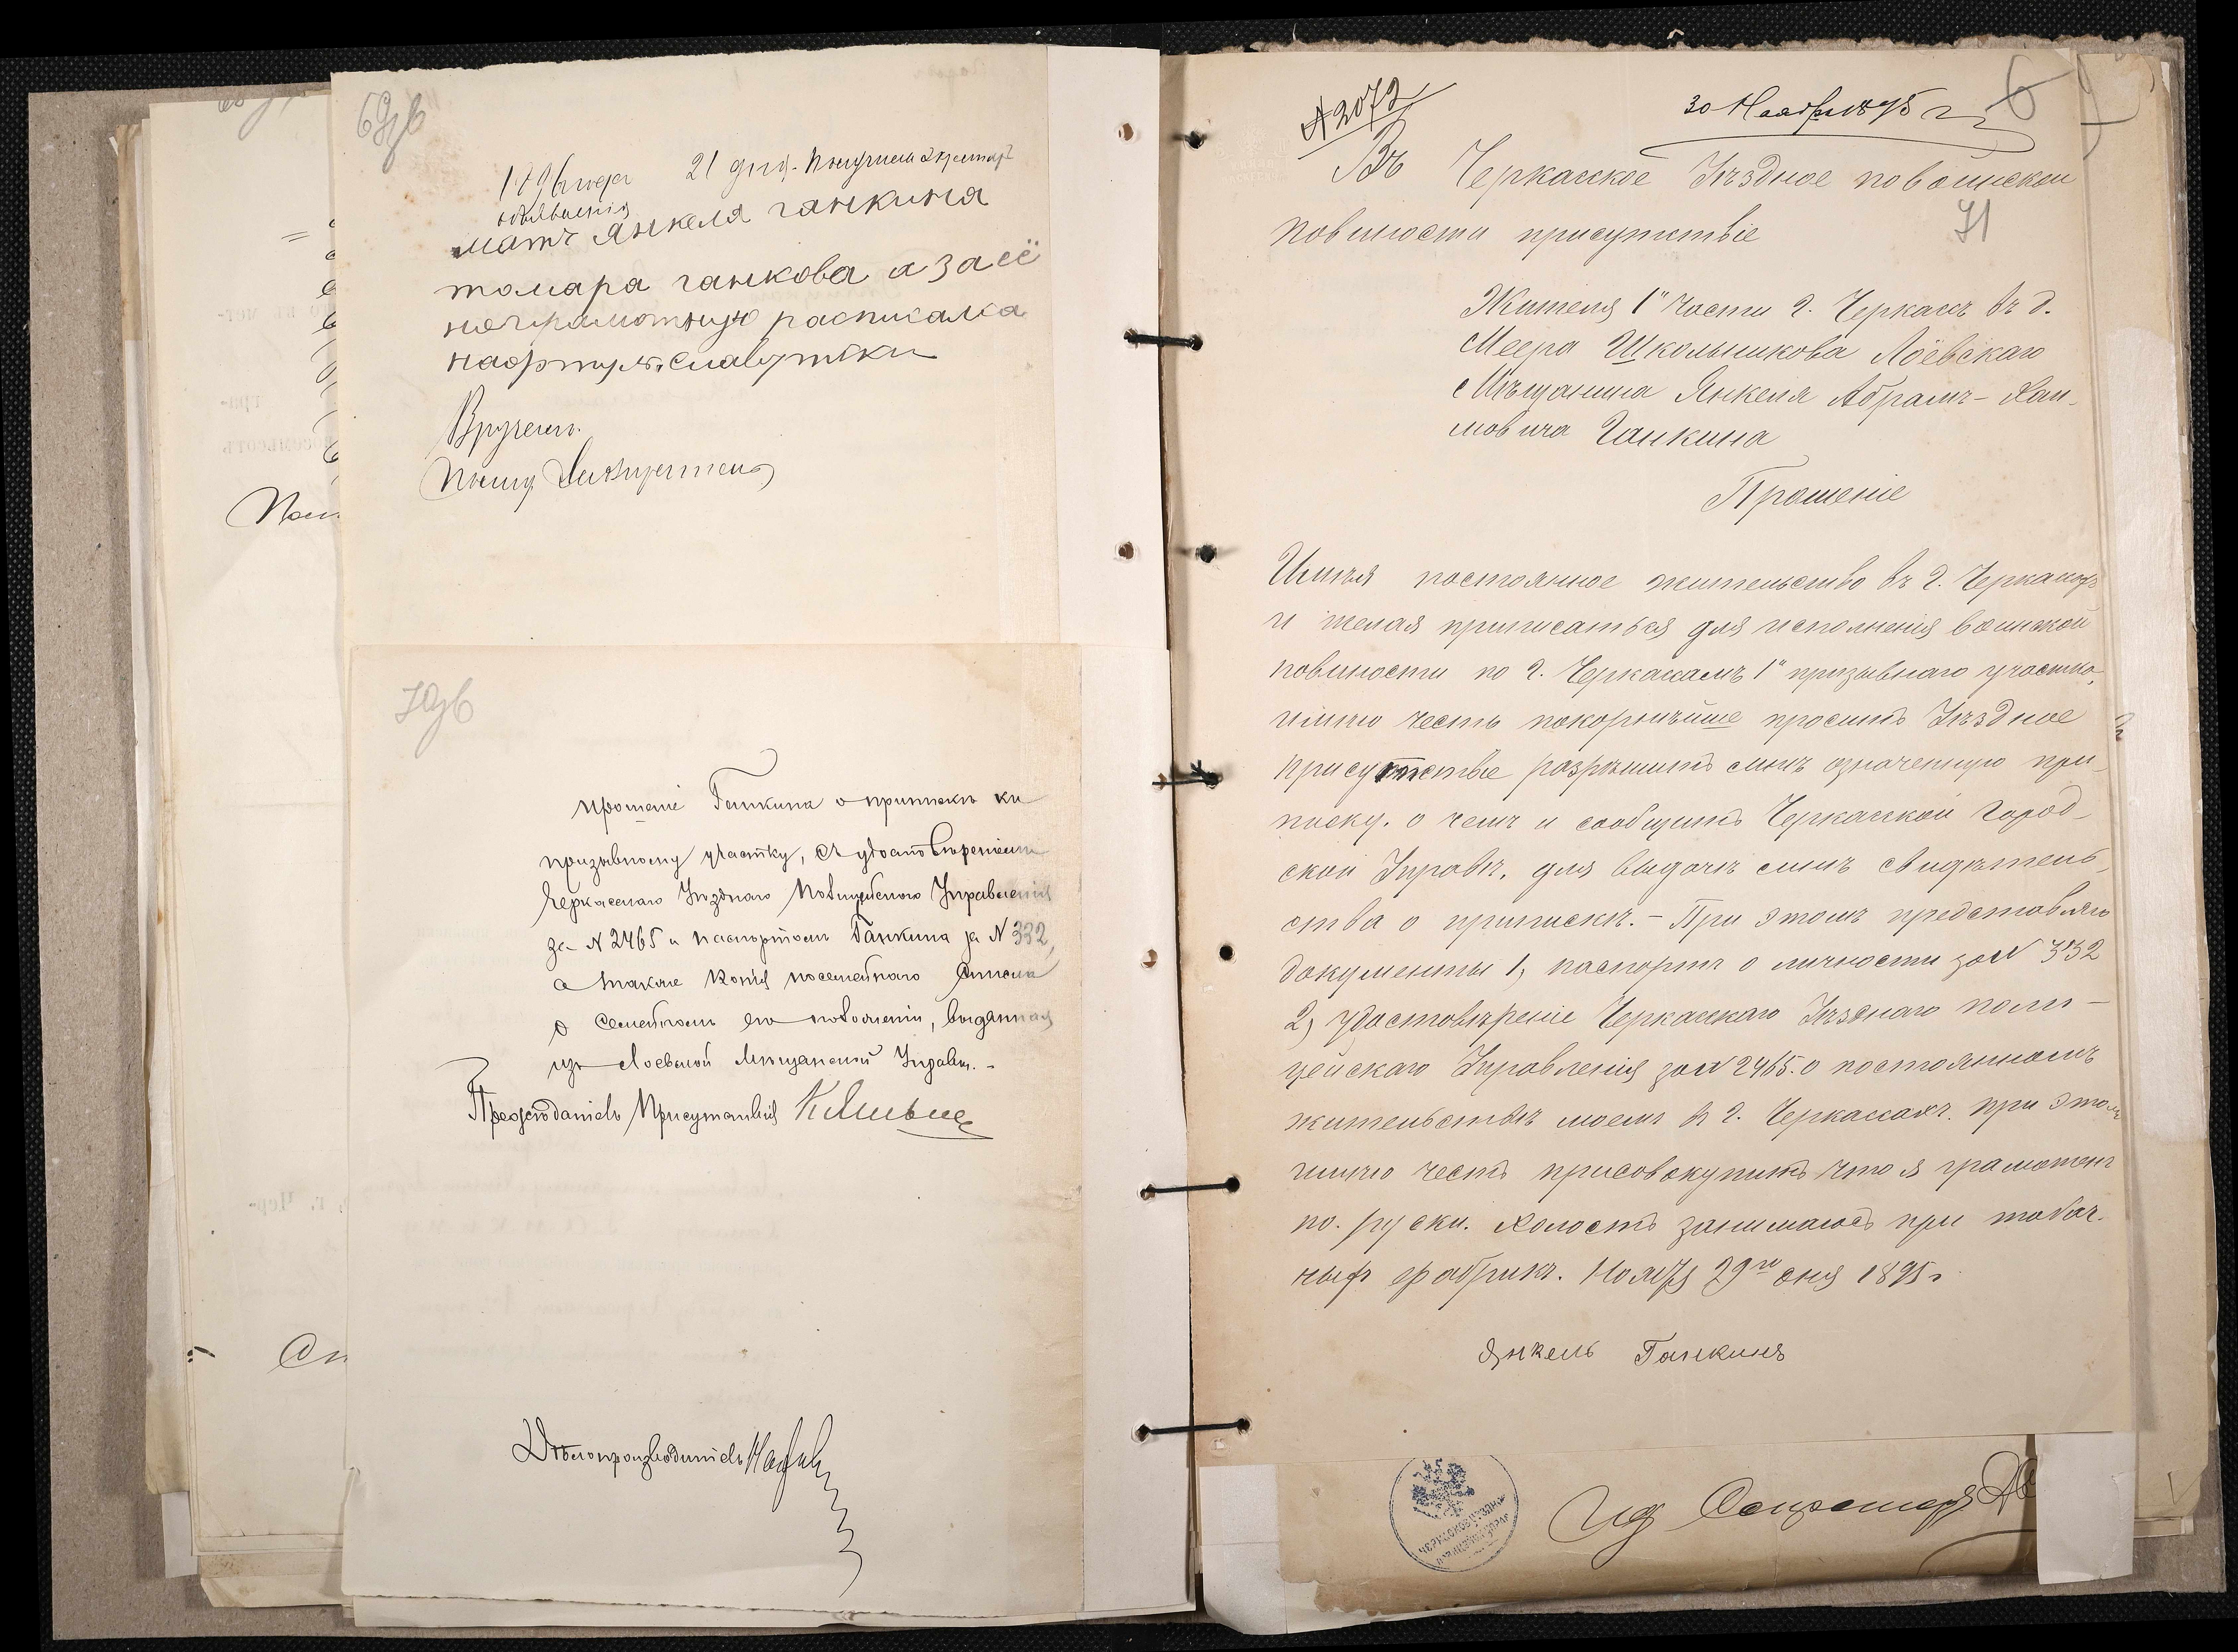 69об
1896 года 21 дня.
объявления
мать Янкеля ганкина
томара ганкова а за её
неграмотную расписалка
нафтул. славутски
Вручен.
70об
прошение Ганкина о приписке къ
призывному участку, съ удостоверением
Черкасского Уездного Полицейского Управления
за N 2465 и паспортом Ганкина за N 332,
а также копия посемейного списка
о семейном его положении, выданная
из Лоевской Мещанской Управы. -
Председатель Присутствия
Делопроизводитель
N 2072
30 Ноября 1895 г
Въ Черкасское Уѣздное по воинской
71
повиности присутствие
Жителя 1й Части г. Черкасъ въ д.
Меера Школьникова Лоевскаго
Мѣщанина Янкеля Абрамъ-Хаи-
мовича Ганкина
Прошеніе
Имѣя постоянное жительство въ г. Черкасахъ
и желая приписаться для исполненія воинской
повиности по г. Черкассамъ 1й призывнаго участка,
имѣю честь покорнѣйше просить Уѣздное
присутствіе разрѣшить мнѣ означенную при-
писку. о чемъ и сообщить Черкасской Город-
ской Управѣ, для выдачѣ мнѣ свидѣтель-
ства о припискѣ. - При этомъ представляю
документы 1, паспортъ о личности за N 332
2, удостовѣреніе Черкасскаго Уѣзднаго поли-
цейскаго Управленія за N 2465. о постоянномъ
жительствѣ моемъ в г. Черкассахъ. при этомъ
имѣю честь присовокупить что я грамотенъ
по. руски. холостъ занимаюсь при табач.
ныхъ фабрикъ. Ноября 29го дня 1895 г
Янкель Ганкинъ
Ид Секретаря